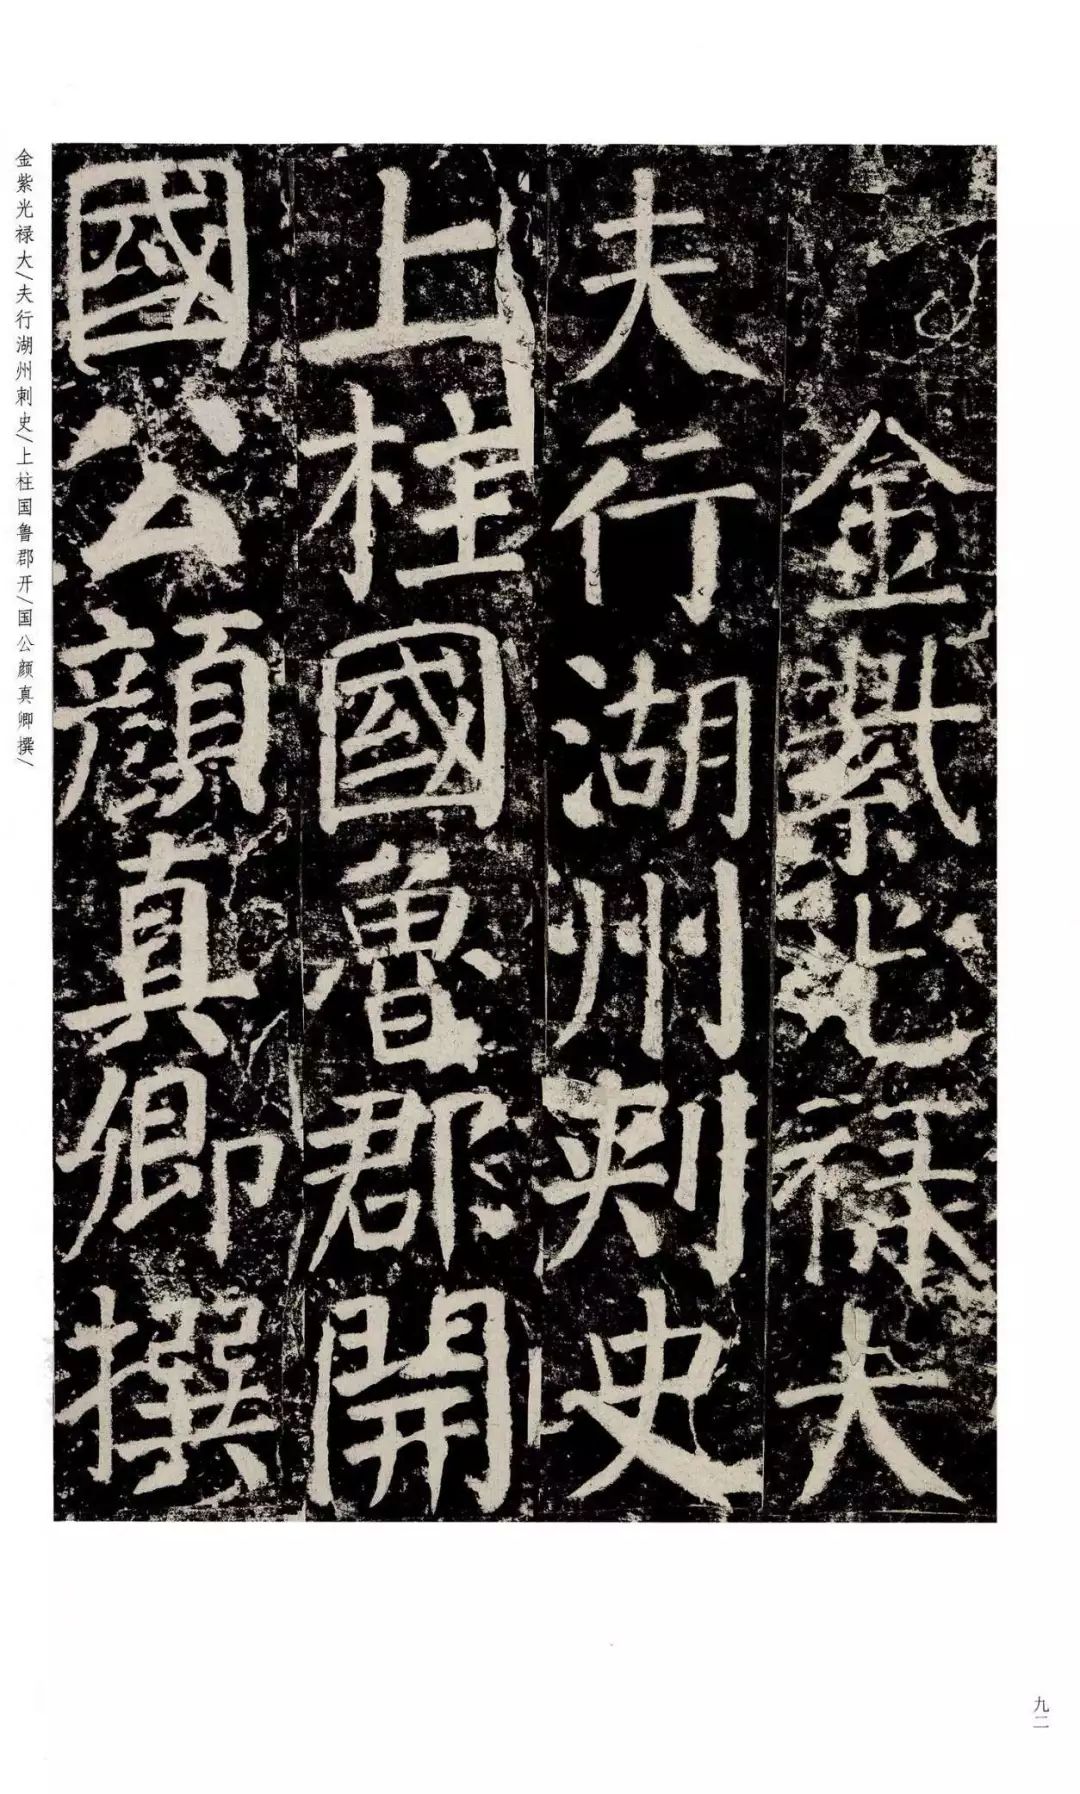 金紫光禄大
夫行湖州刺史
上柱國魯郡開
國公顔真卿撰
金紫光禄大/夫行湖州刺史/上柱国鲁郡开/国公颜真卿撰/
九二